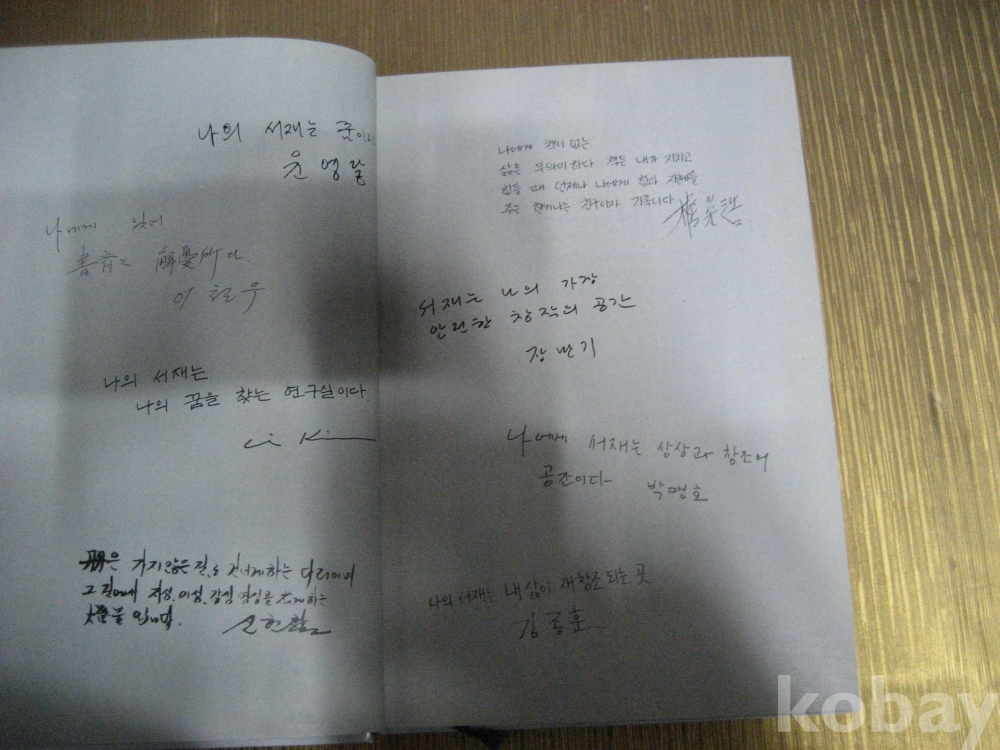 나의 서재는 꿈이다
윤영달
나에게 있어
書斎는 解憂所다.
이철우
나의 서재는
나의 꿈을 찾는 연구실이다.
책은 가지않은 길도 건너게하는 다리이며
그 길에서 지성, 이성, 감성
나에게 책이 없는
삶은 무의미하다 책은 내가 지치고
힘들 때 언제나 나에게 힘과 지혜를
주는
서재는 나의 가장
안전한 창작의 공간
장만기
나에게 서재는 상상과 창조의
공간이다 박맹호
나의 서재는 내 삶이 재창조되는 곳
김종훈
kobay